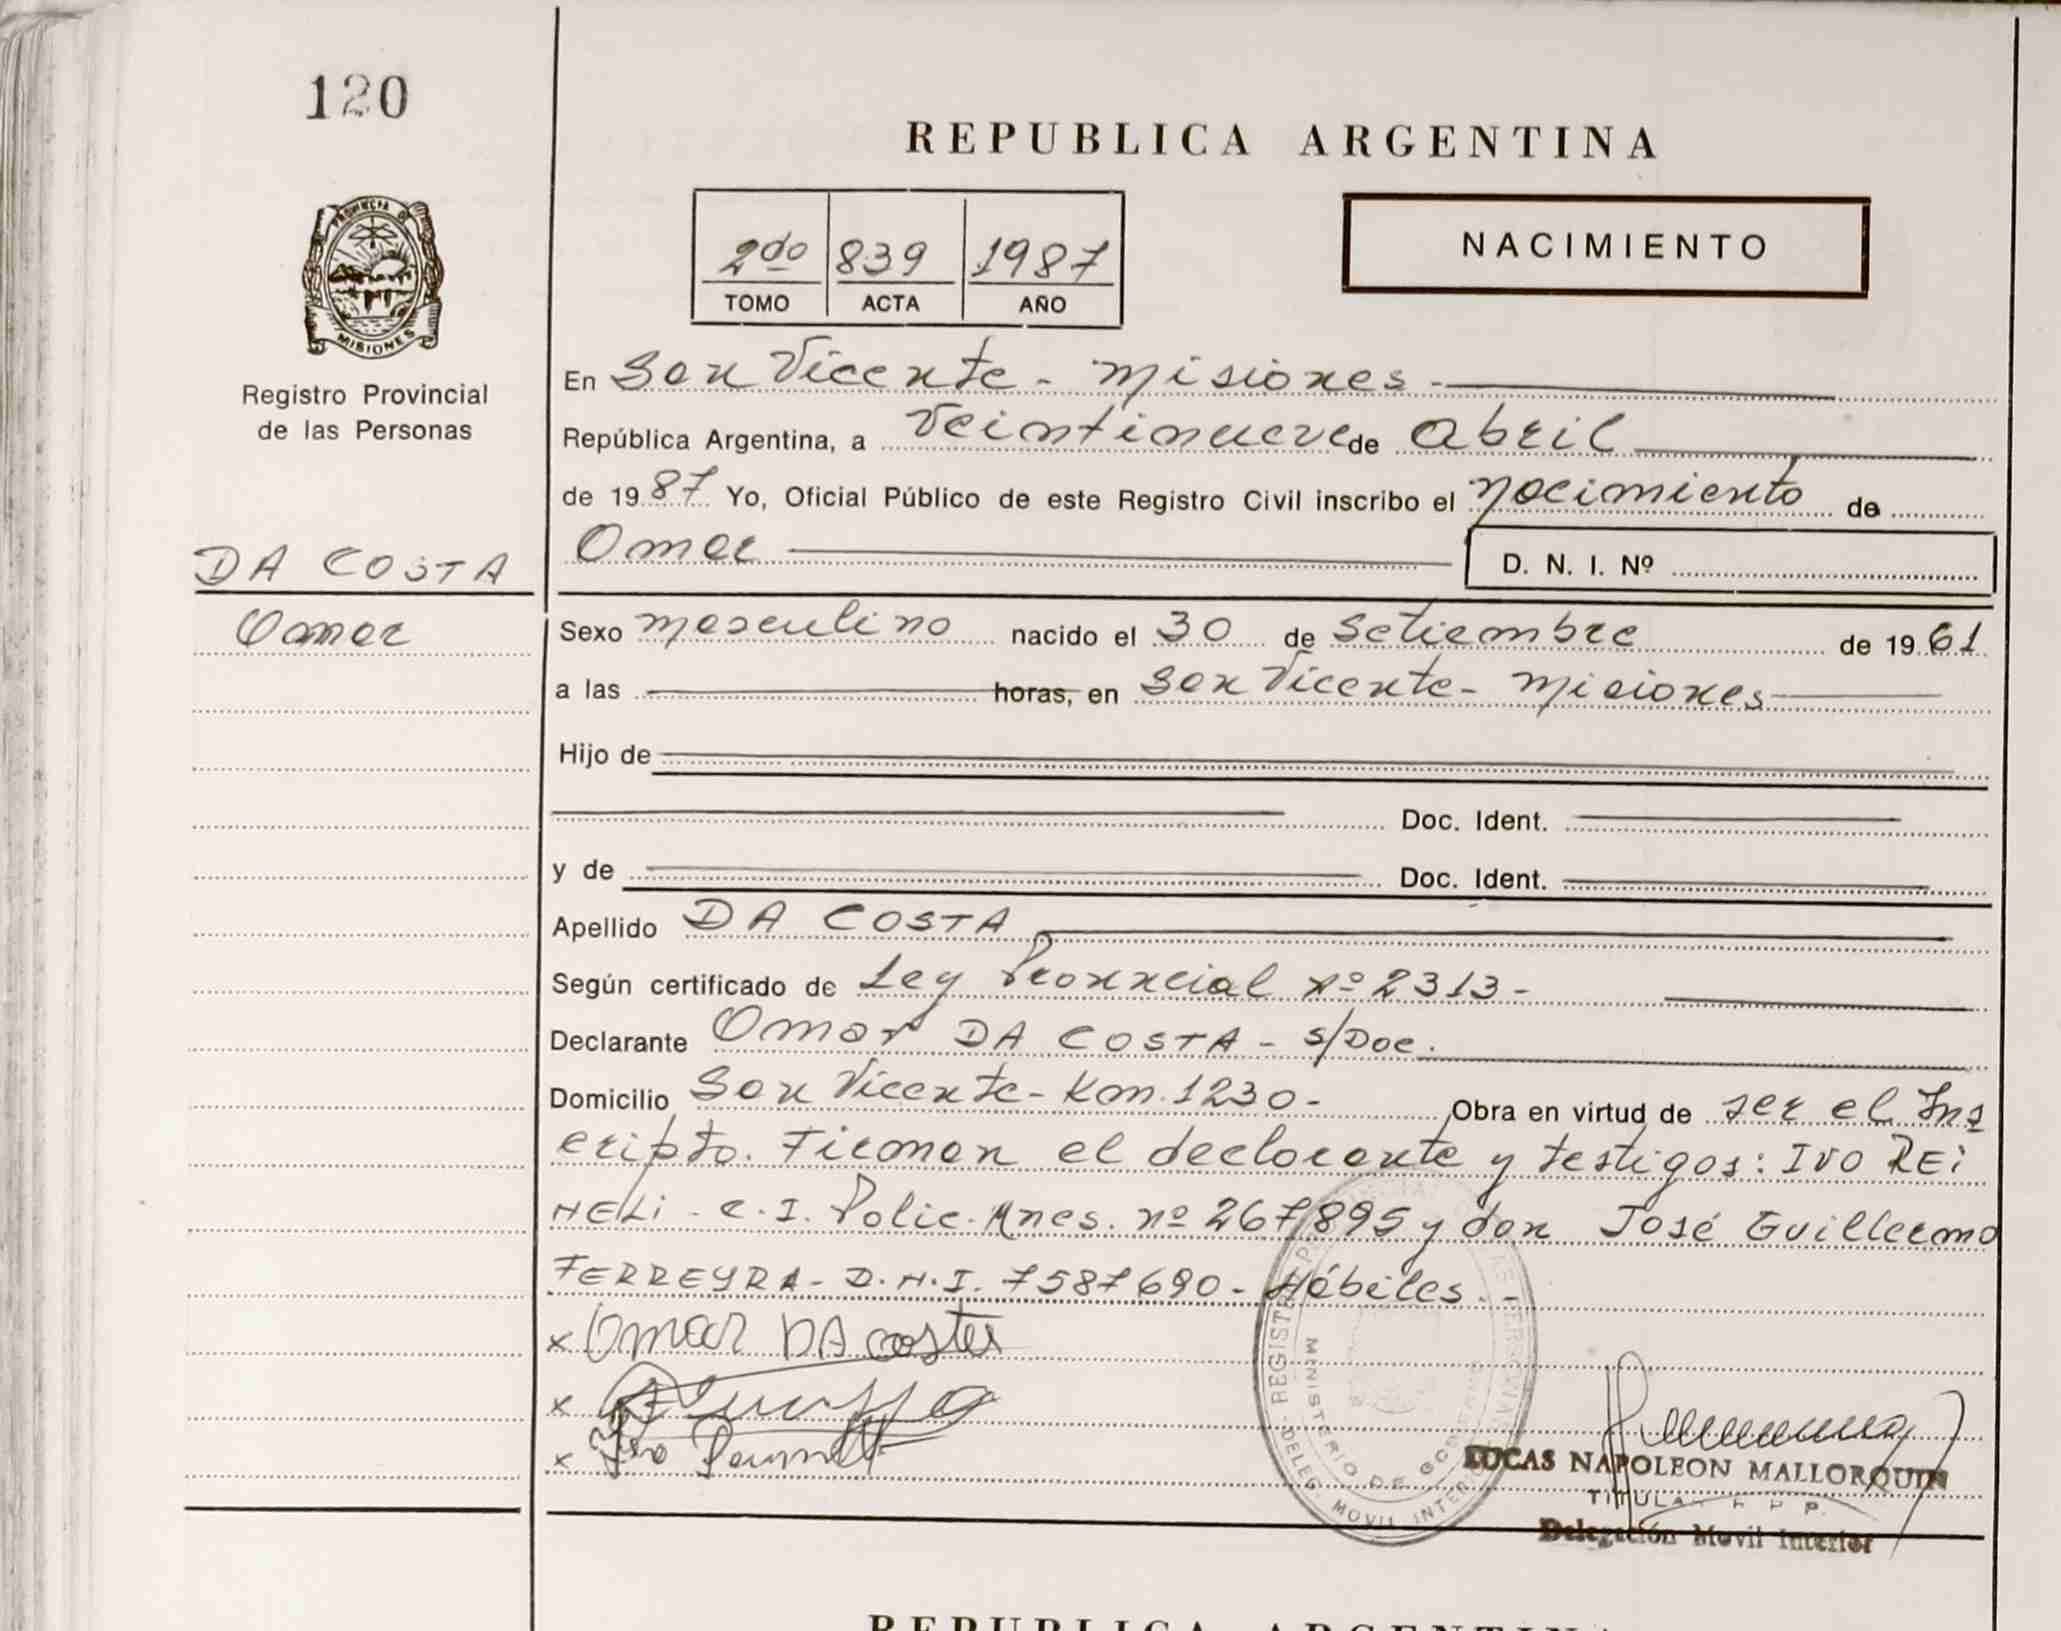 120
REPUBLICA ARGENTINA
2do 839 1987
TOMO ACTA AÑO
NACIMIENTO
PROVINCIA DE
MISIONES
Registro Provincial
de las Personas
En San Vicente - Misiones -
República Argentina, a Veintinueve de abril
de 1987 Yo, Oficial Público de este Registro Civil inscribo el nacimiento de
DA COSTA
Omar
D. N. I. Nº
Omar
Sexo masculino nacido el 30 de Setiembre de 1961
a las horas, en San Vicente - Misiones
Hijo de
Doc. Ident.
y de Doc. Ident.
Apellido DA COSTA
Según certificado de Ley Provincial nº 2313 -
Declarante Omar DA COSTA - S/Doc.
Domicilio San Vicente - Km. 1230 - Obra en virtud de ser el Ins
cripto. Firman el declarante y testigos: IVO REi
NELi - C. I. Polic. Mnes. nº 267895 y don José Guillermo
FERREYRA - D.N.I. 7587690 - Hábiles. -
x Omar DA costa
x
x Ivo
REGISTR PERSONAS
MINISTERIO DE GOBIERNO
DELEG. MOVIL INTERIOR
LUCAS NAPOLEON MALLORQUIN
TITULAR R P P.
Delegación Movil Interior
REPUBLICA ARGENTINA